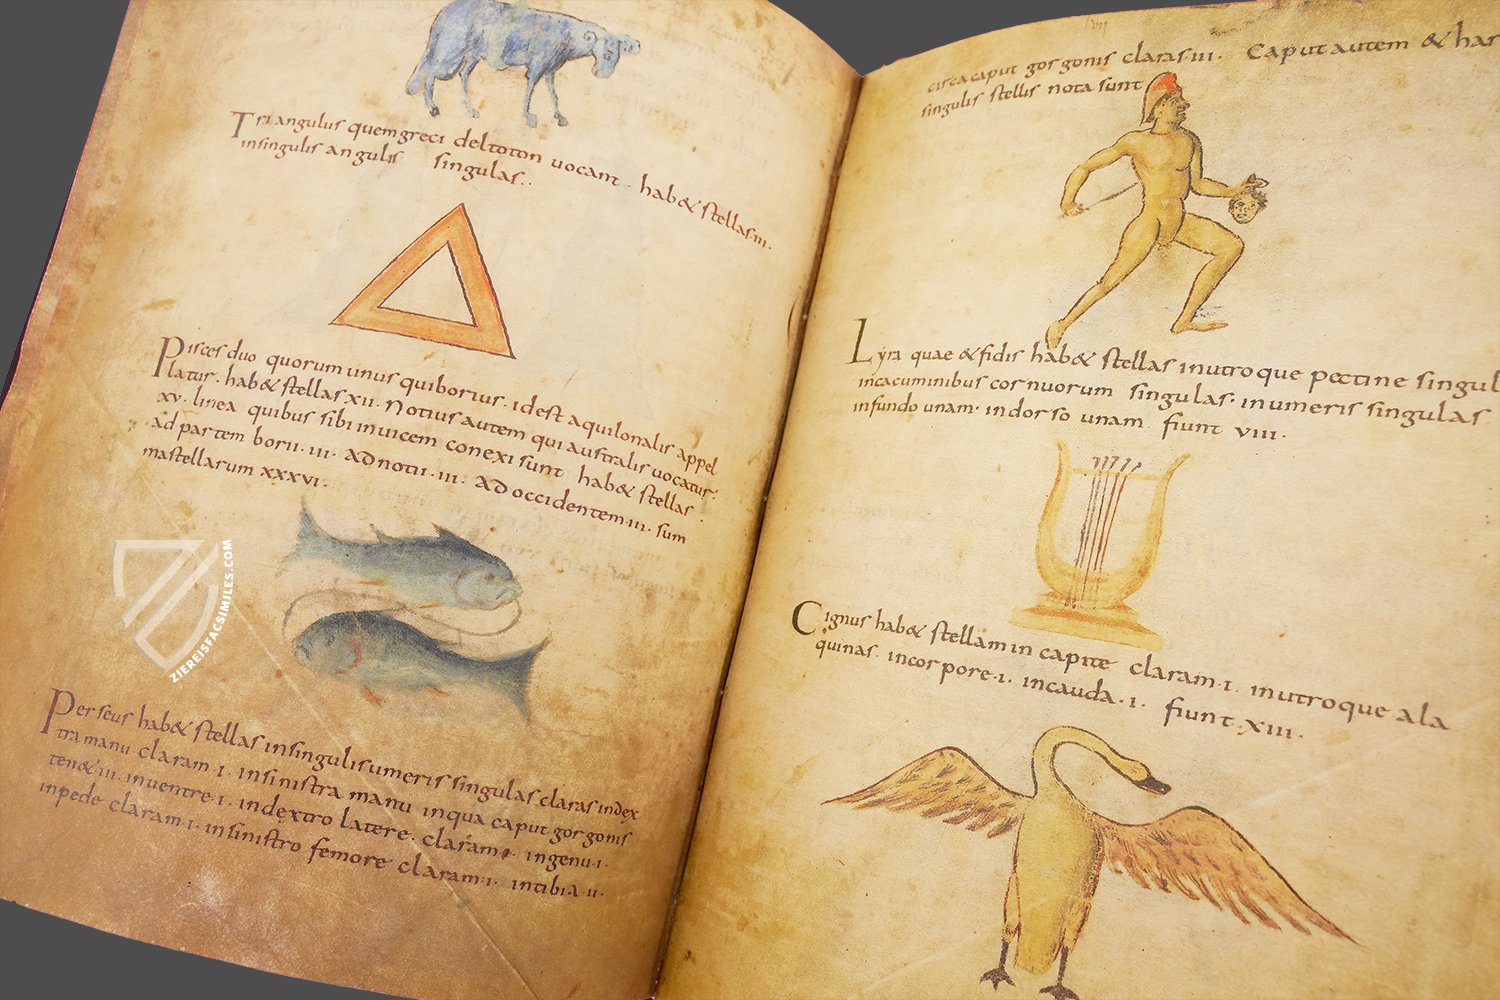 Triangulus quem greci deltoton uocant. hab& stellas.iii.
in singulis angulis singulas..
Pisces duo quorum unus quiborius. idest aquilonalis appel
latur. hab& stellas xii. Notius autem qui australis uocatur.
xv. linea quibus sibi inuicem conexi sunt hab& stellas.
ad partem borii. iii. ad notii. iii. ad occidentem.iii. sum
ma stellarum xxxvi.
Perseus hab& stellas in singulis umeris singulas claras in dex
tra manu claram.i. in sinistra manu in qua caput gorgonis
ten& iii. in uentre.i. in dextro latere. claram. in genu.i.
in pede claram.i. in sinistro femore claram.i. in tibia.ii.
ZIEREISFACSIMILES.COM
circa caput gorgonis claras.iii. Caput autem & har
singulis stellis nota sunt
Lyra quae & fidis hab& stellas in utroque pectine singul
in cacuminibus cornuorum singulas. in umeris singulas
in fundo unam. in dorso unam fiunt viii.
Cignus hab& stellam in capite claram.i. in utroque ala
quinas. in corpore.i. in cauda.i. fiunt.xiii.